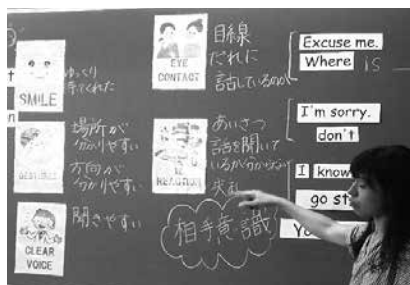 SMILE
ゆっくり
場所が
分かりやすい
方向が
分かりやすい
CLEAR
VOICE
聞きやすい
EYE
CONTACT
目線
だれに
話しているのか
REACTION
あいさつ
話を聞いて
いるか分からない
相手意識
Excuse me.
Where is
I'm sorry.
don't
I know
go st
Yo